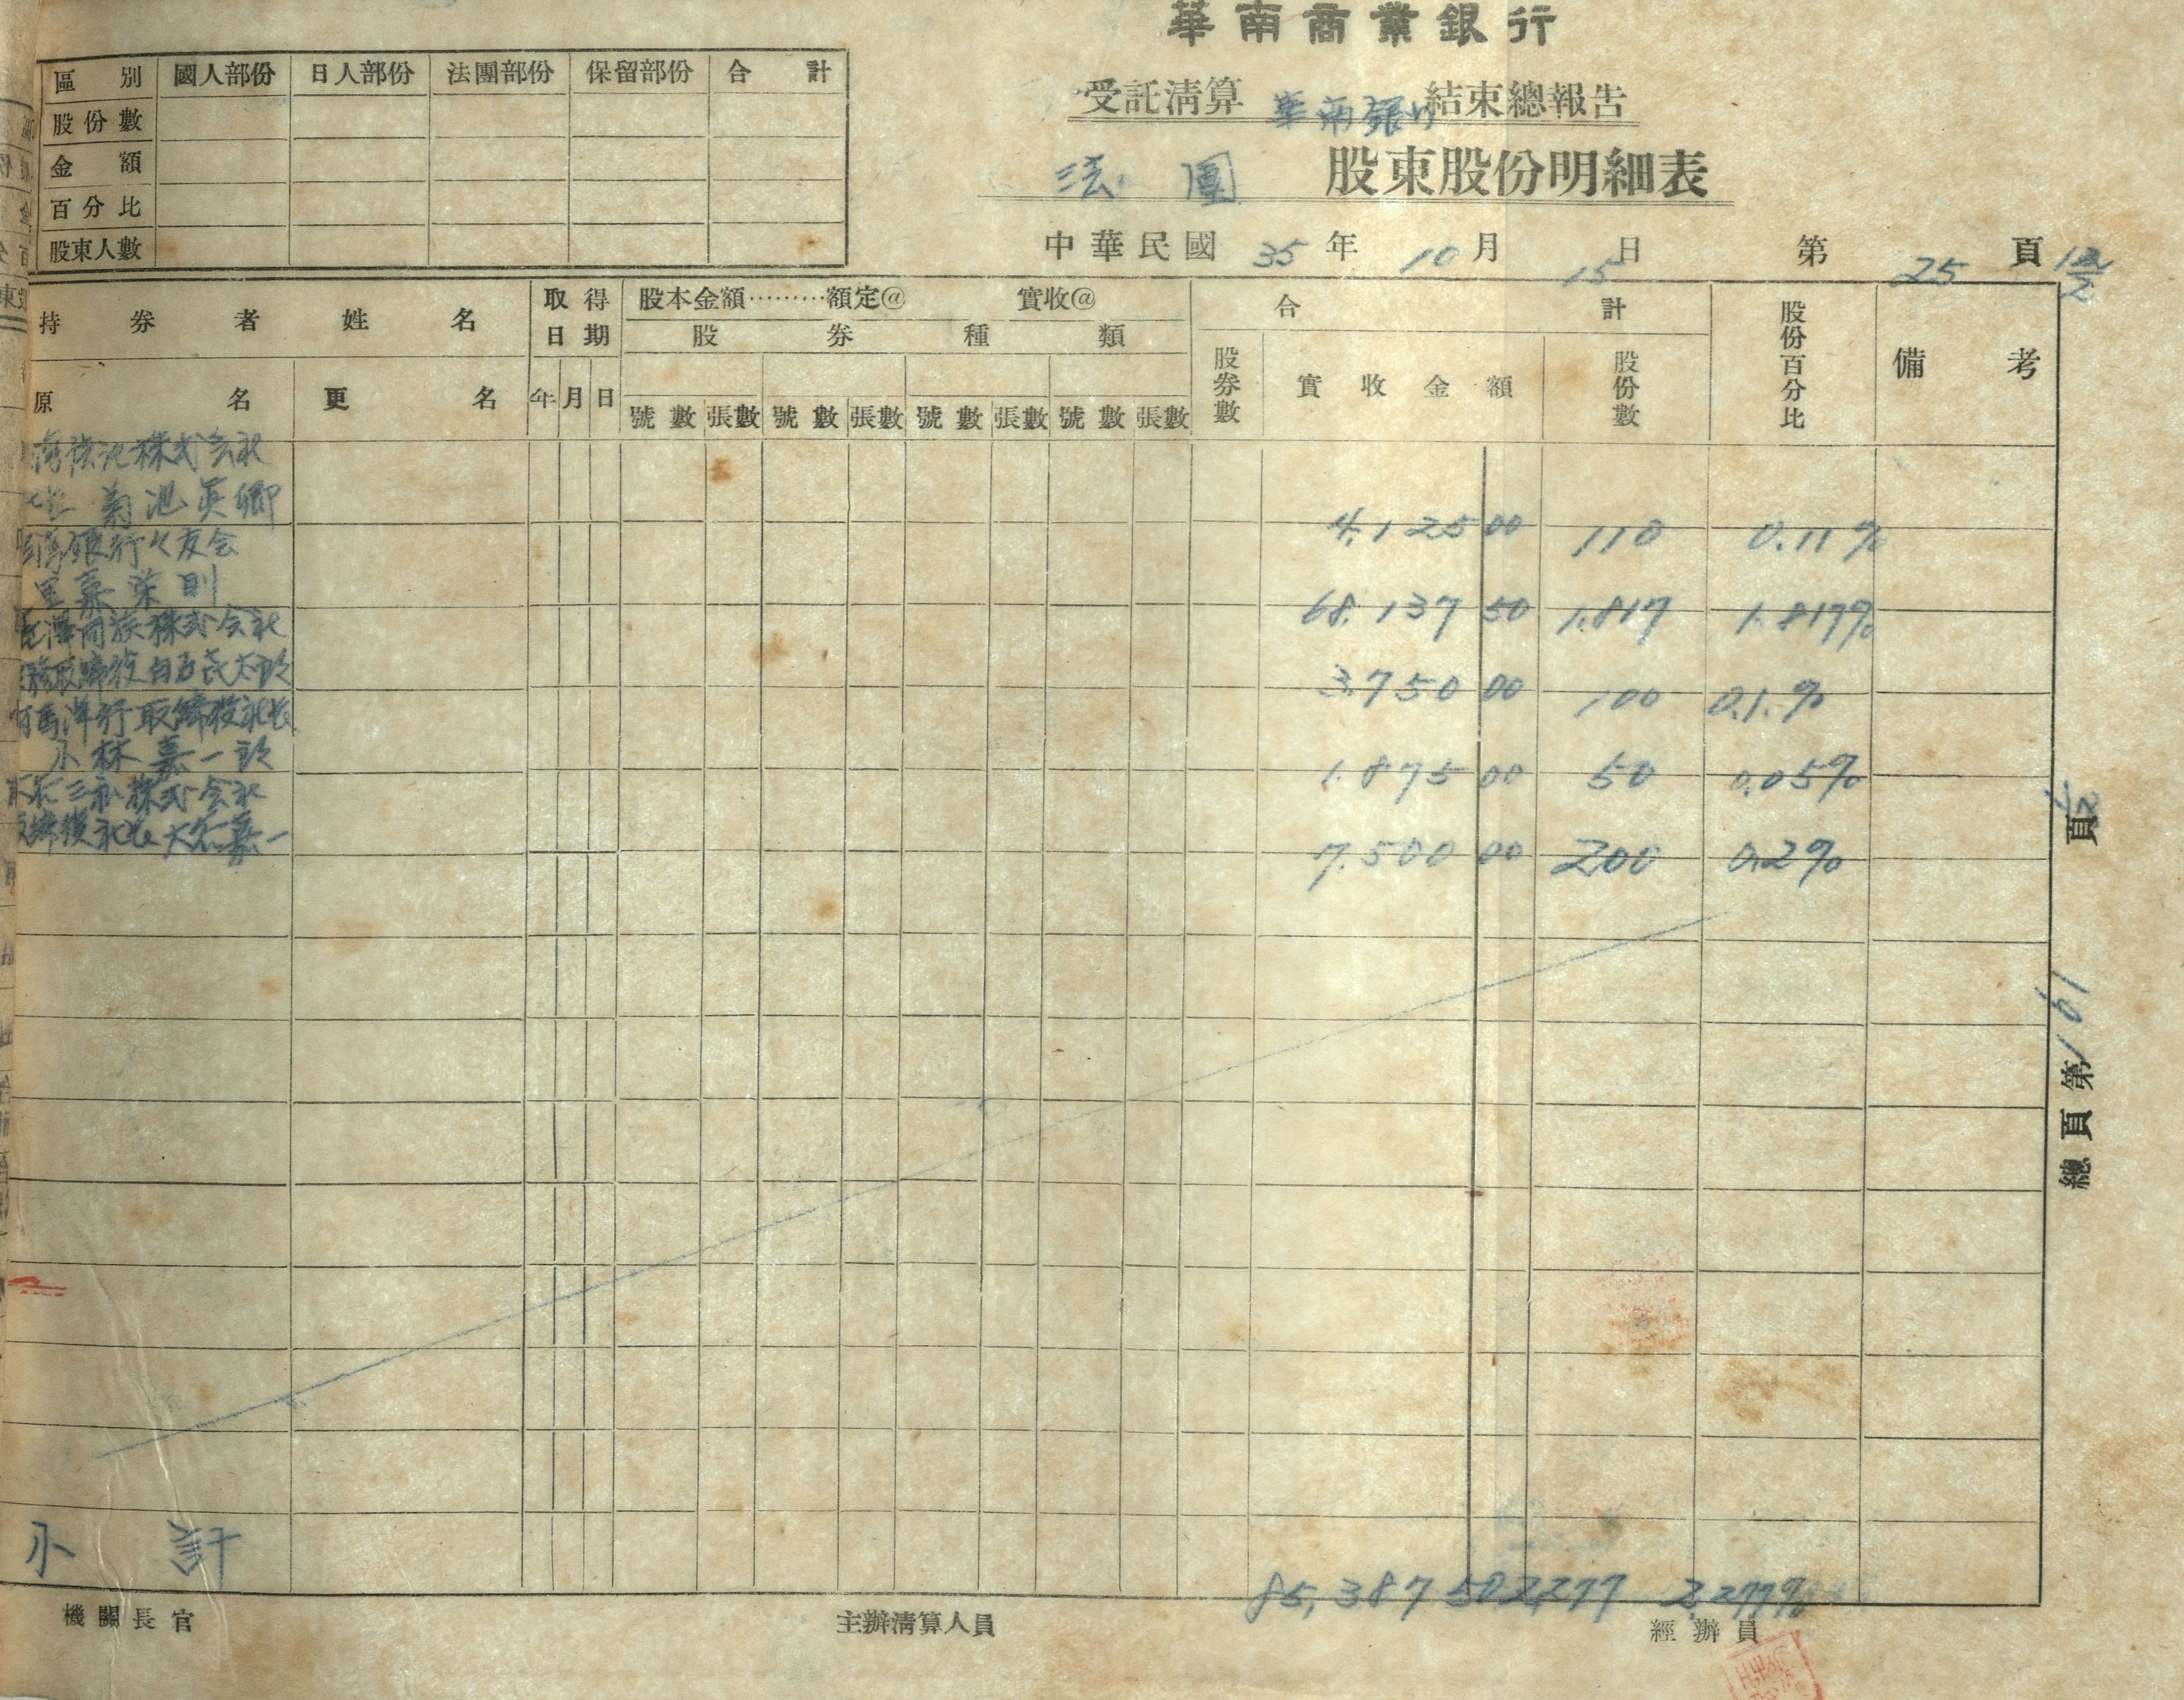 華南商業銀行
受託清算 華南銀行 結束總報告
法團 股東股份明細表
中華民國 35 年 10 月 15 日 第 25 頁
區別 國人部份 日人部份 法團部份 保留部份 合計
股份數
金額
百分比
股東人數
持券者姓名 取得日期 股本金額………額定@ 實收@ 合計 股份百分比 備考
股券種類
原名 更名 年 月 日 號數 張數 號數 張數 號數 張數 號數 張數 股券數 實收金額 股份數
株式会社
菊池英卿
4,125 00 110 0.11%
銀行々友会
嘉榮則
68,137 50 1,817 1.817%
同族株式会社
取締役白方
3,750 00 100 0.1%
洋行取締役社長
小林嘉一郎
1,875 00 50 0.05%
株式会社
取締役社長大嘉一
7,500 00 200 0.2%
小計 85,387 50 2,277 2.277%
機關長官 主辦清算人員 經辦員
總頁第 161 頁